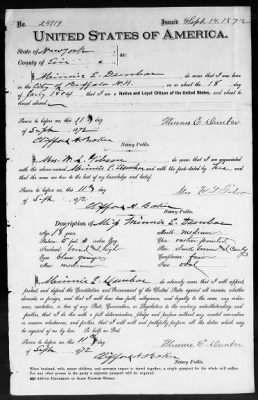 No. 24719 Issued Sept 14. 1872
UNITED STATES OF AMERICA.
State of New York
County of Erie
I, Minnie E. Dunbar do swear that I was born
in the City of Buffalo N.Y. on or about the 18 day
of July 1854; that I am a Native and Loyal Citizen of the United States, and about
to travel abroad.
Sworn to before me this 11th day
of Sept 1872
Minnie E. Dunbar
Clifford A. Baker
Notary Public.
I, do swear that I am acquainted with
the above named Minnie E. Dunbar and with the facts stated by her, and that
the same are true to the best of my knowledge and belief.
Sworn to before me this 11th
day of Sept 1872
Mrs
Clifford A. Baker
Notary Public.
Description of Miss Minnie E. Dunbar
Age: 18 years Mouth: medium
Stature: 5 feet inches, Eng. Chin: rather pointed
Forehead: broad & high Hair:
Eyes: blue Complexion: fair
Nose: medium Face: oval
I, Minnie E. Dunbar do solemnly swear that I will support,
protect, and defend the Constitution and Government of the United States against all enemies, whether
domestic or foreign; and that I will bear true faith, allegiance, and loyalty to the same, any ordinance,
resolution, or law of any State, Convention, or Legislature to the contrary notwithstanding; and further,
that I do this with a full determination, pledge, and purpose, without any mental reservation
or evasion whatsoever; and further, that I will well and faithfully perform all the duties which may
be required of me by law. So help me God.
Sworn to before me this 11th day
of Sept 1872
Minnie E. Dunbar
Clifford A. Baker
Notary Public.
When husband, wife, minor children, and servants expect to travel together, a single passport for the whole will suffice.
For any other person in the party a separate passport will be required.